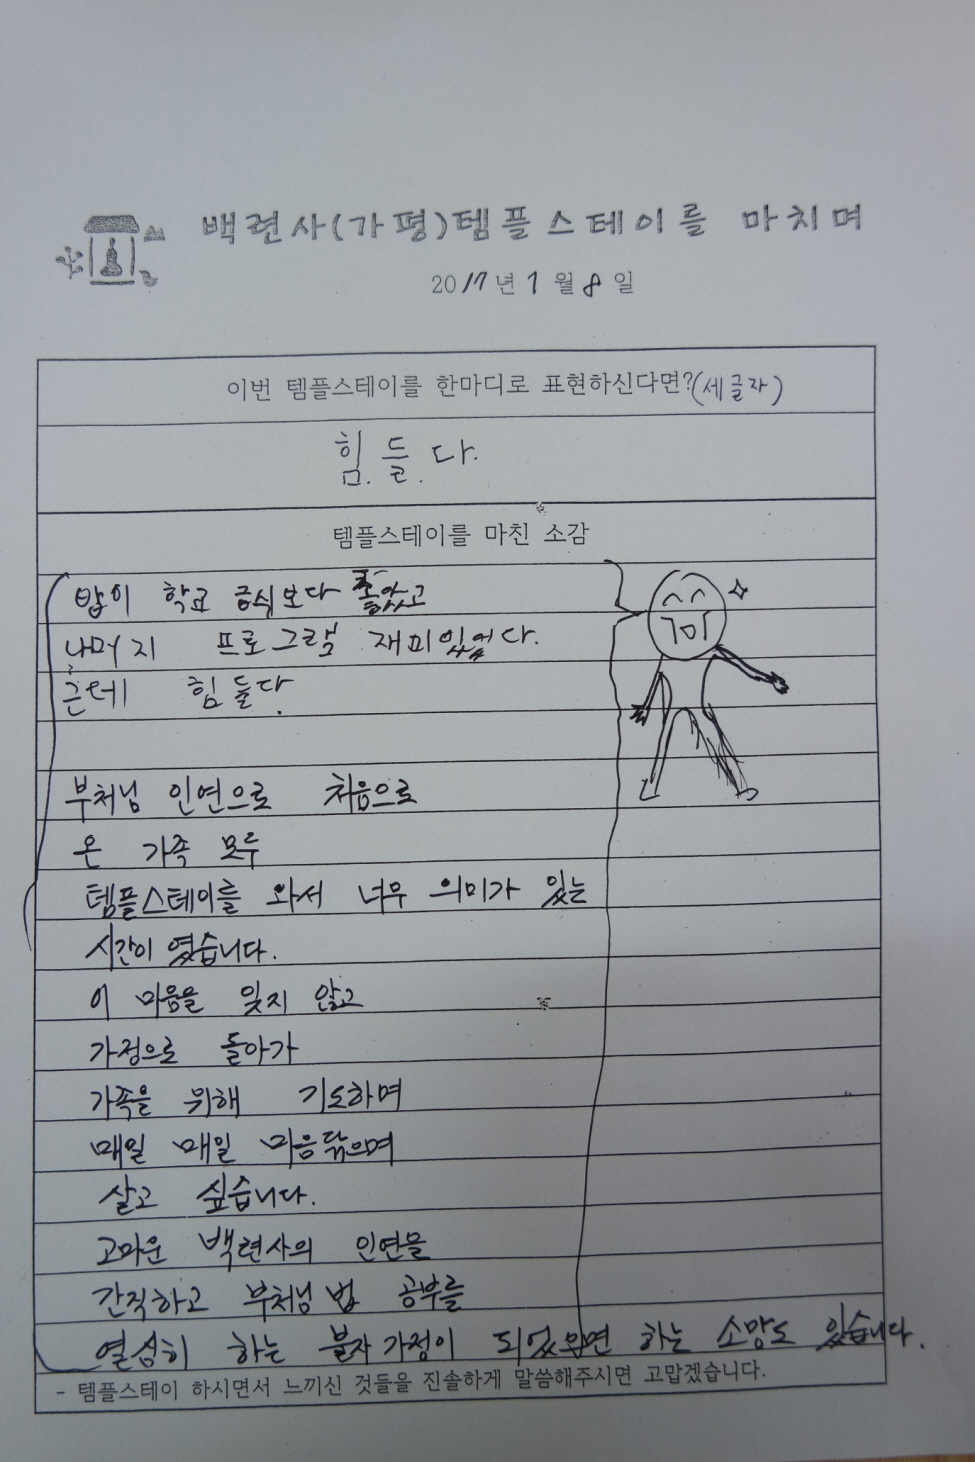 백련사(가평)템플스테이를 마치며
2017년 1월 8일
이번 템플스테이를 한마디로 표현하신다면?(세글자)
힘.들.다.
템플스테이를 마친 소감
밥이 학교 급식보다 좋았고
나머지 프로그램 재미있었다.
근데 힘들다.
부처님 인연으로 처음으로
온 가족 모두
템플스테이를 와서 너무 의미가 있는
시간이 였습니다.
이 마음을 잊지 않고
가정으로 돌아가
가족을 위해 기도하며
매일 매일 마음닦으며
살고 싶습니다.
고마운 백련사의 인연을
간직하고 부처님 법 공부를
열심히 하는 불자 가정이 되었으면 하는 소망도 있습니다.
- 템플스테이 하시면서 느끼신 것들을 진솔하게 말씀해주시면 고맙겠습니다.